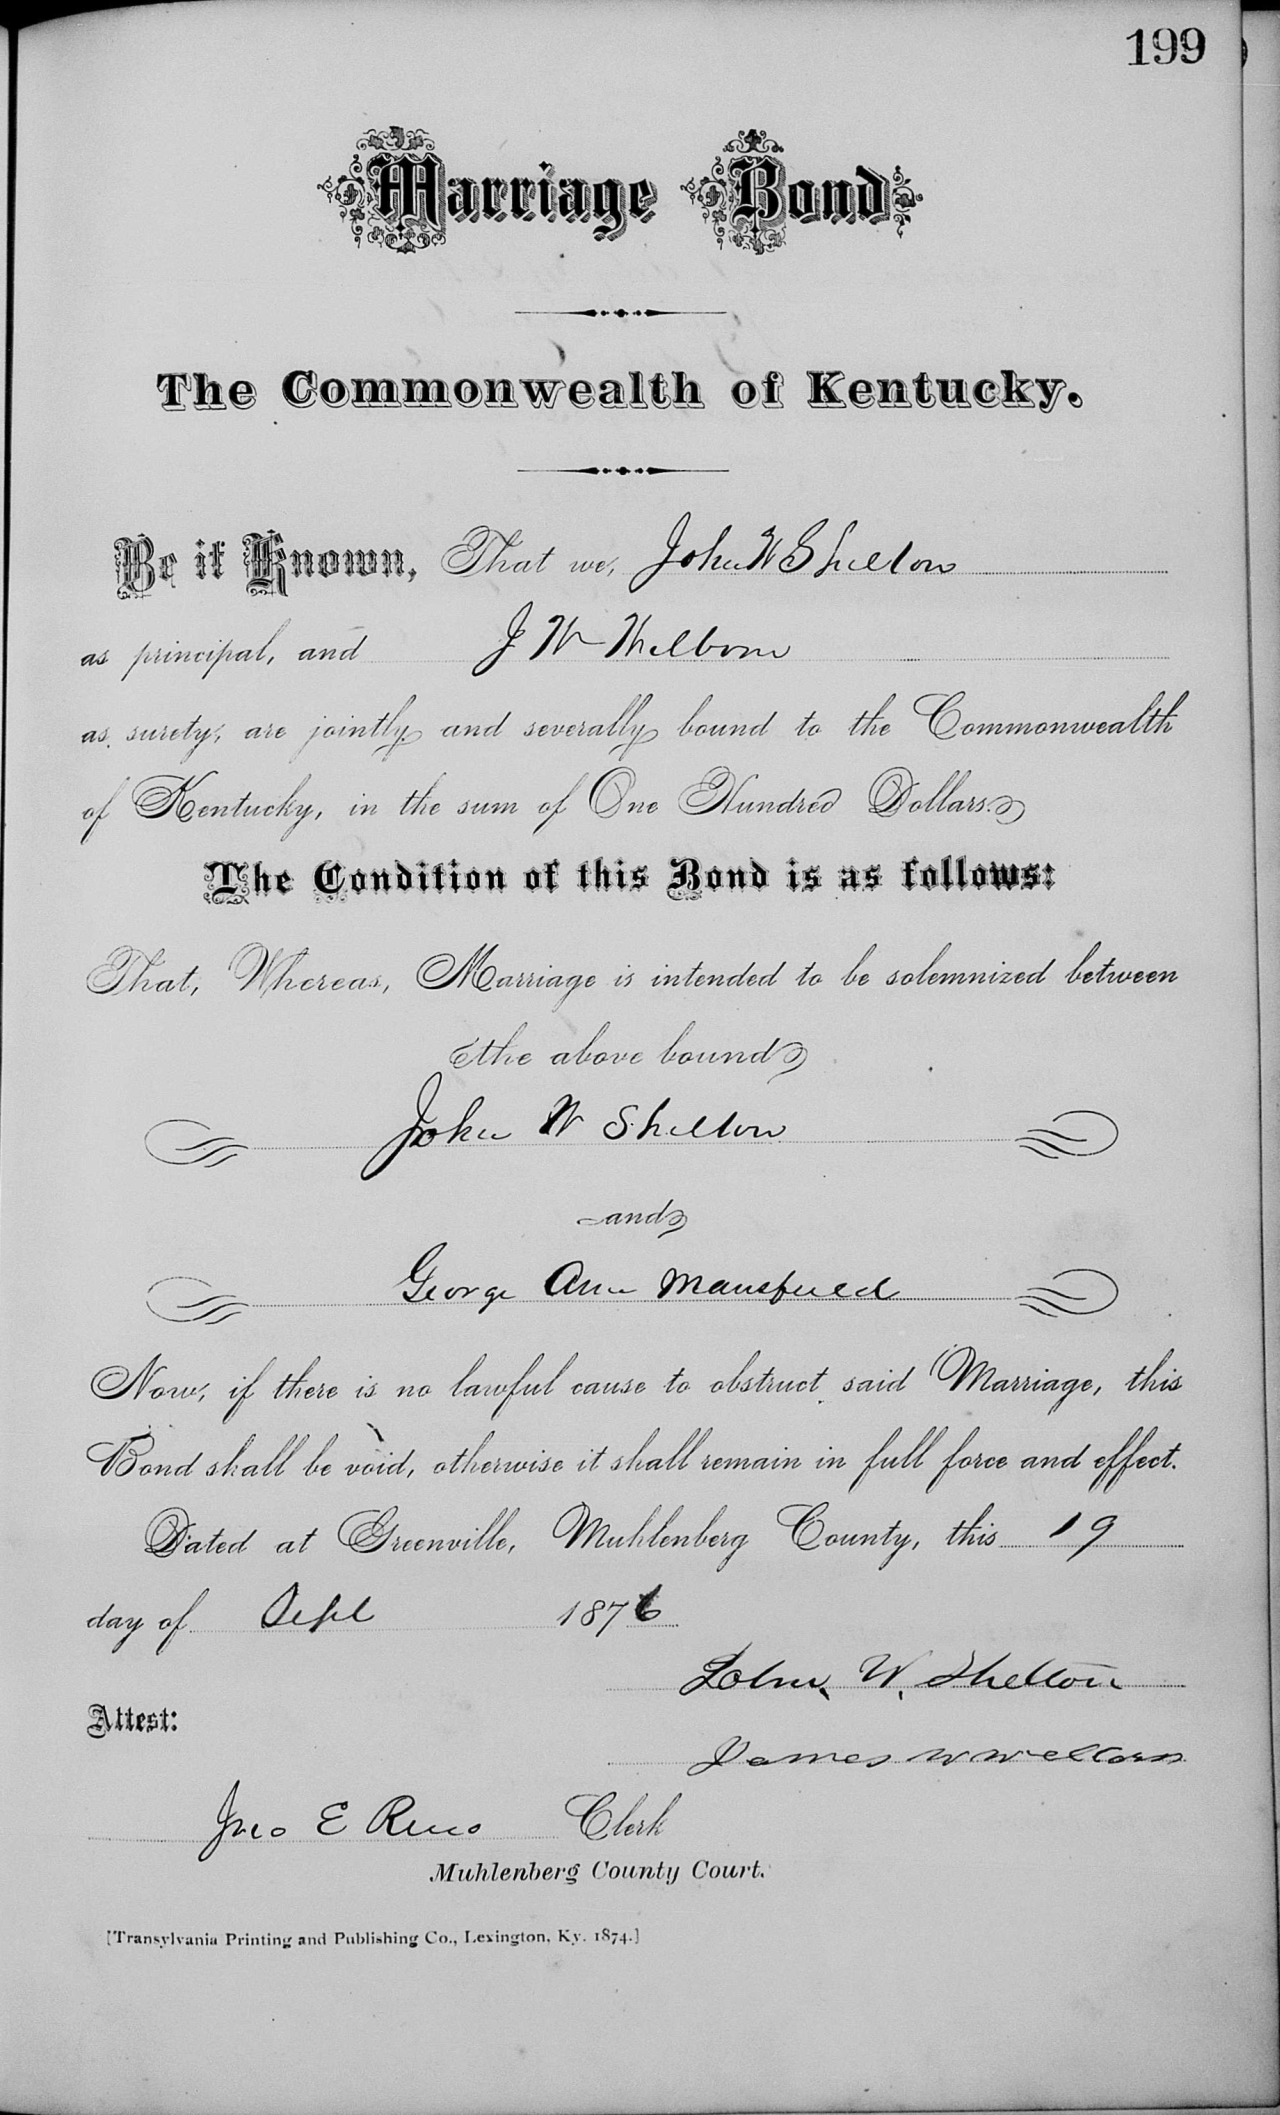 199
Marriage Bond
The Commonwealth of Kentucky.
Be it Known, That we, John W Shelton
as principal, and J W Welborn
as surety, are jointly and severally bound to the Commonwealth
of Kentucky, in the sum of One Hundred Dollars.
The Condition of this Bond is as follows:
That, Whereas, Marriage is intended to be solemnized between
the above bound
John W Shelton
and
George Ann Mansfield
Now, if there is no lawful cause to obstruct said Marriage, this
Bond shall be void, otherwise it shall remain in full force and effect.
Dated at Greenville, Muhlenberg County, this 19
day of Sept 1876
John W. Shelton
Attest:
James W Welborn
Jno E Reno Clerk
Muhlenberg County Court.
[Transylvania Printing and Publishing Co., Lexington, Ky. 1874.]